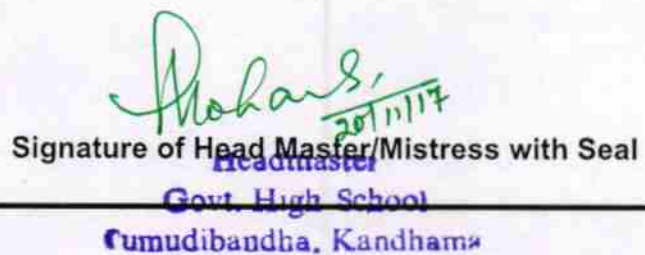 20/11/17
Signature of Head Master/Mistress with Seal
Headmaster
Govt. High School
Tumudibandha, Kandhama